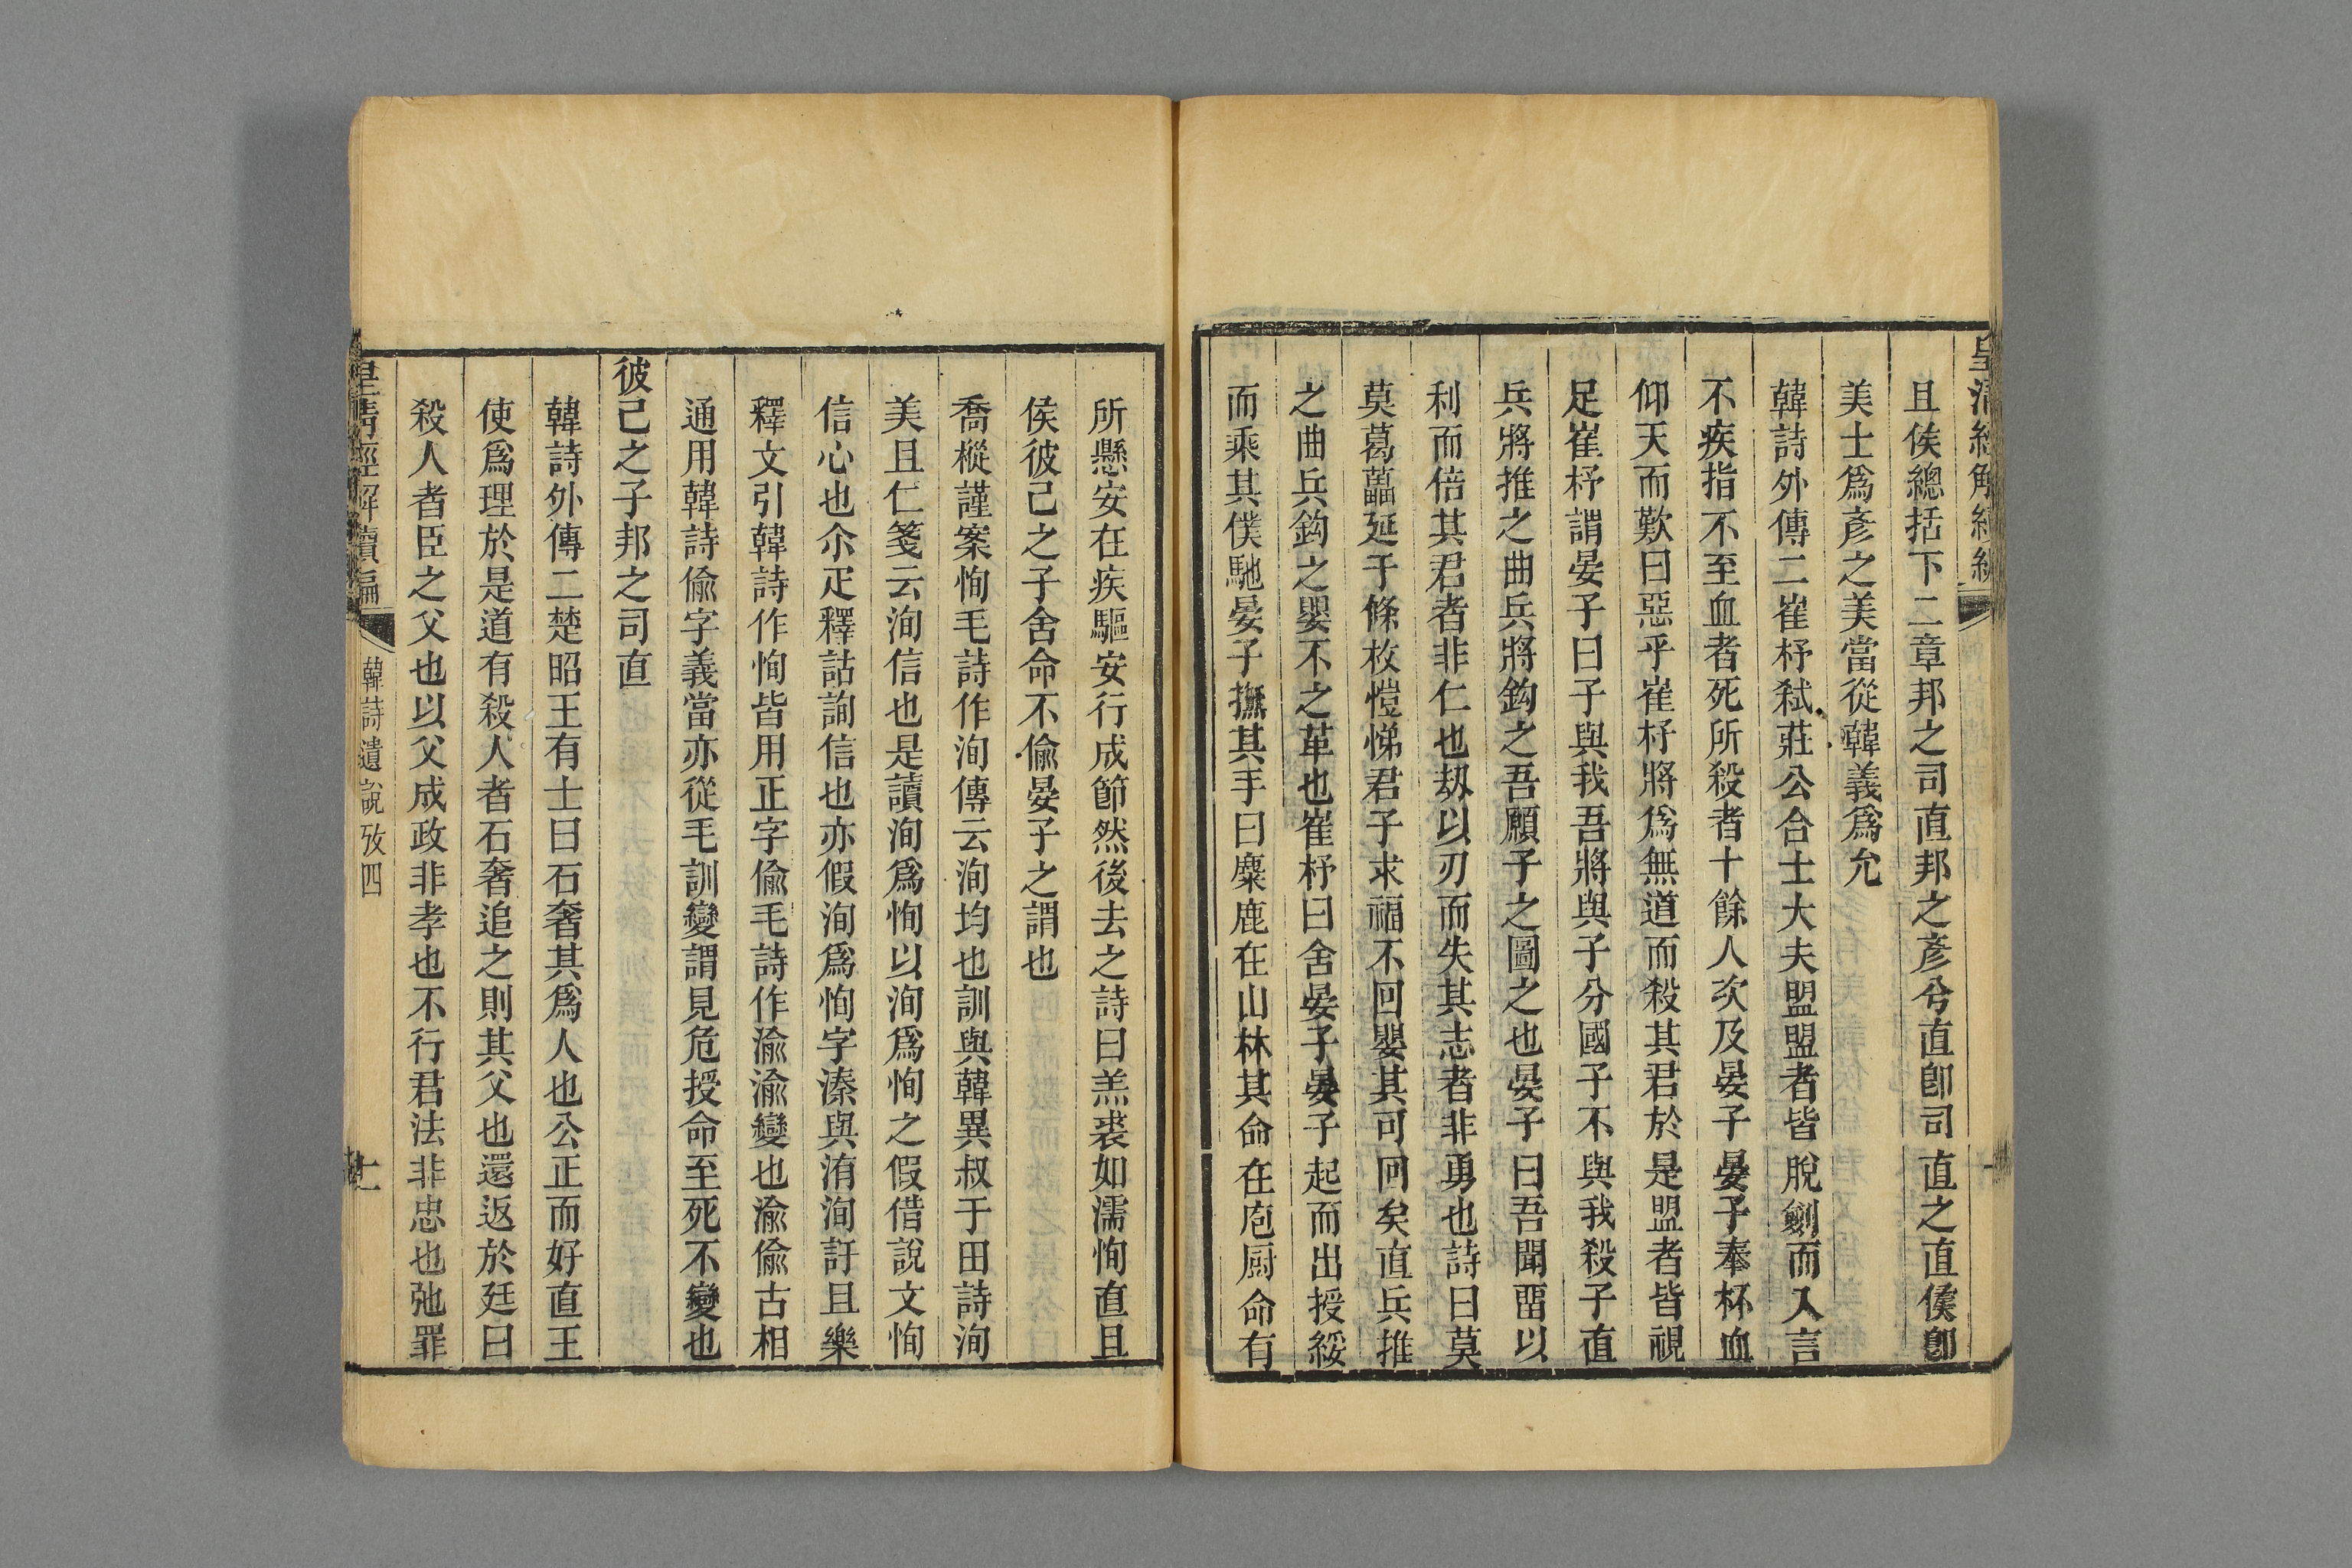 皇清經解續編
且侯總括下二章邦之司直邦之彥兮直卽司直之直侯卽
美士爲彥之美當從韓義爲允
韓詩外傳二崔杼弒莊公合士大夫盟盟者皆脫劒而入言
不疾指不至血者死所殺者十餘人次及晏子晏子奉杯血
仰天而歎曰惡乎崔杼將爲無道而殺其君於是盟者皆視
足崔杼謂晏子曰子與我吾將與子分國子不與我殺子直
兵將推之曲兵將鈎之吾願子之圖之也晏子曰吾聞畱以
利而倍其君者非仁也劫以刃而失其志者非勇也詩曰莫
莫葛藟延于條枚愷悌君子求福不回嬰其可回矣直兵推
之曲兵鈎之嬰不之革也崔杼曰舍晏子晏子起而出授綏
而乘其僕馳晏子撫其手曰麋鹿在山林其命在庖厨命有
所懸安在疾驅安行成節然後去之詩曰羔裘如濡恂直且
侯彼己之子舍命不偷晏子之謂也
喬樅謹案恂毛詩作洵傳云洵均也訓與韓異叔于田詩洵
美且仁箋云洵信也是讀洵爲恂以洵爲恂之假借說文恂
信心也尒疋釋詁詢信也亦假洵爲恂字溱與洧洵訏且樂
釋文引韓詩作恂皆用正字偷毛詩作渝渝變也渝偷古相
通用韓詩偷字義當亦從毛訓變謂見危授命至死不變也
彼己之子邦之司直
韓詩外傳二楚昭王有士曰石奢其爲人也公正而好直王
使爲理於是道有殺人者石奢追之則其父也還返於廷曰
殺人者臣之父也以父成政非孝也不行君法非忠也弛罪
皇清經解續編
韓詩遺說攷四